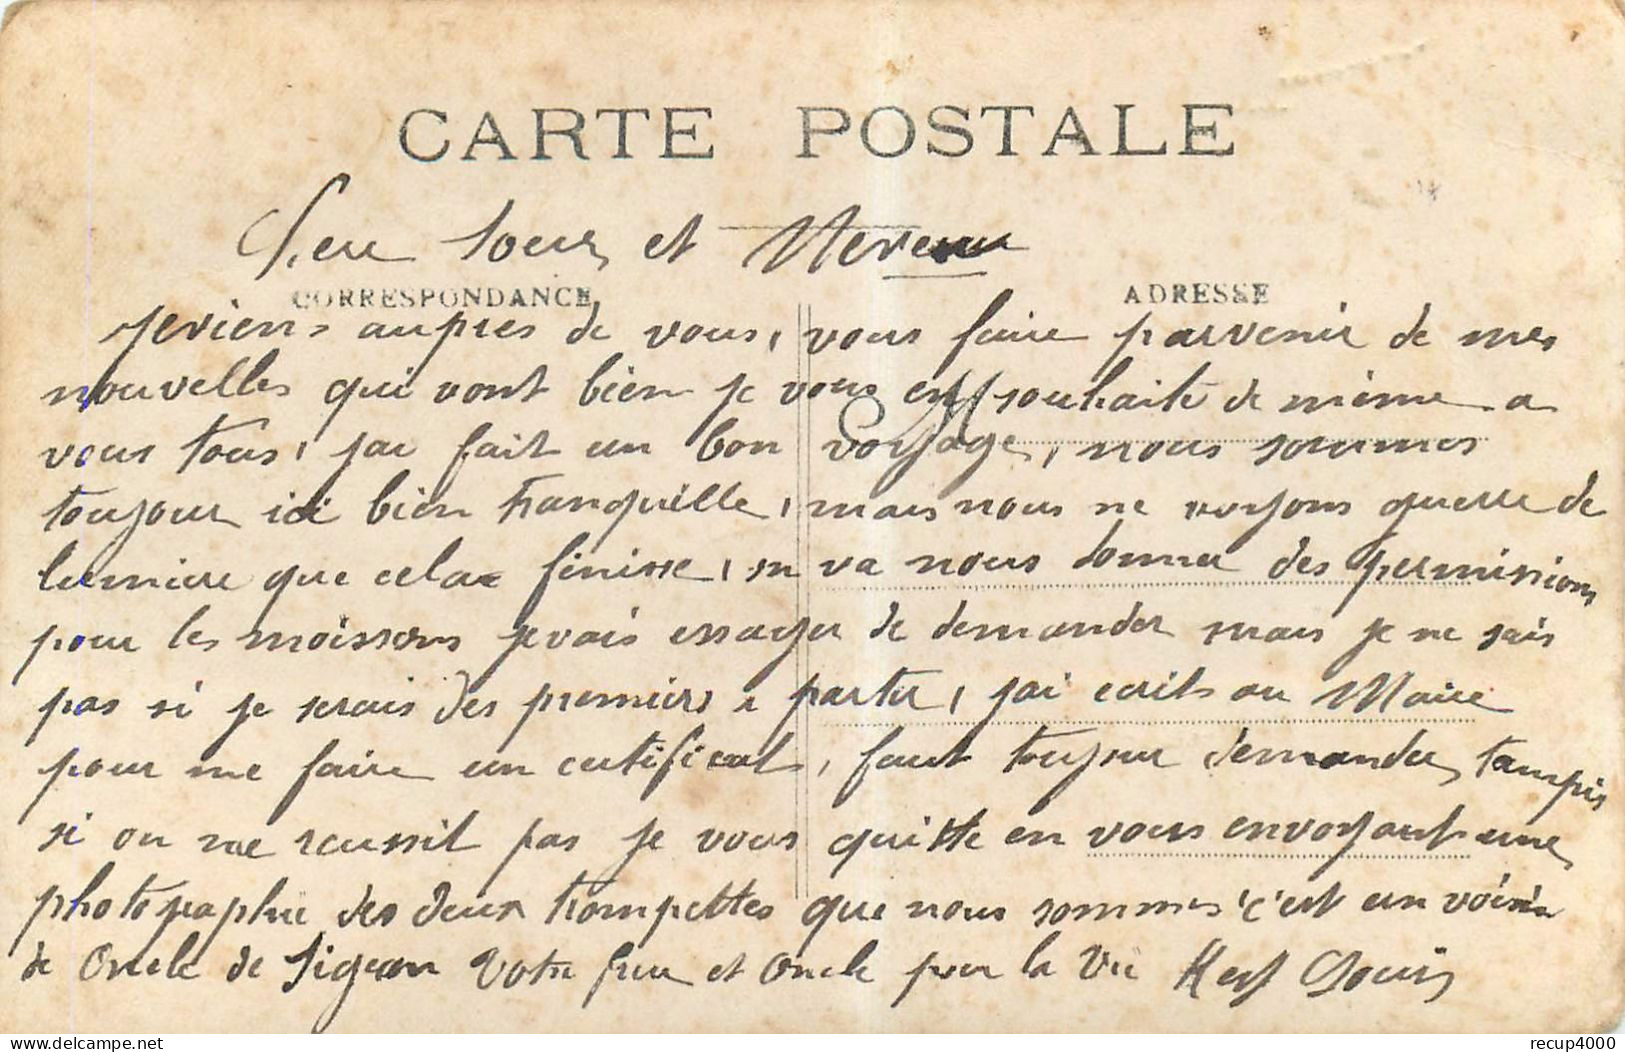 CARTE POSTALE
soeur et Neveu
CORRESPONDANCE ADRESSE
Jeviens aupres de vous, vous faire parvenir de mes
nouvelles qui vont bien je vous en souhaite de même a
vous tous, jai fait un bon voyage, nous sommes
toujour ici bien tranquille, mais nous ne voyons guerre de
lumiere que cela finisse, on va nous donner des permissions
pour les moissons jevais essayer de demander mais je ne sais
pas si je serais des premiers a partir, jai ecrit au Maire
pour me faire un certificat, faut toujour demander, tampis
si on ne reussit pas je vous quitte en vous envoyant une
photographie des deux trompettes que nous sommes c'est un voisin
de Oncle de Sigean Votre frere et Oncle pour la Vie Louis
delcampe.net recup4000